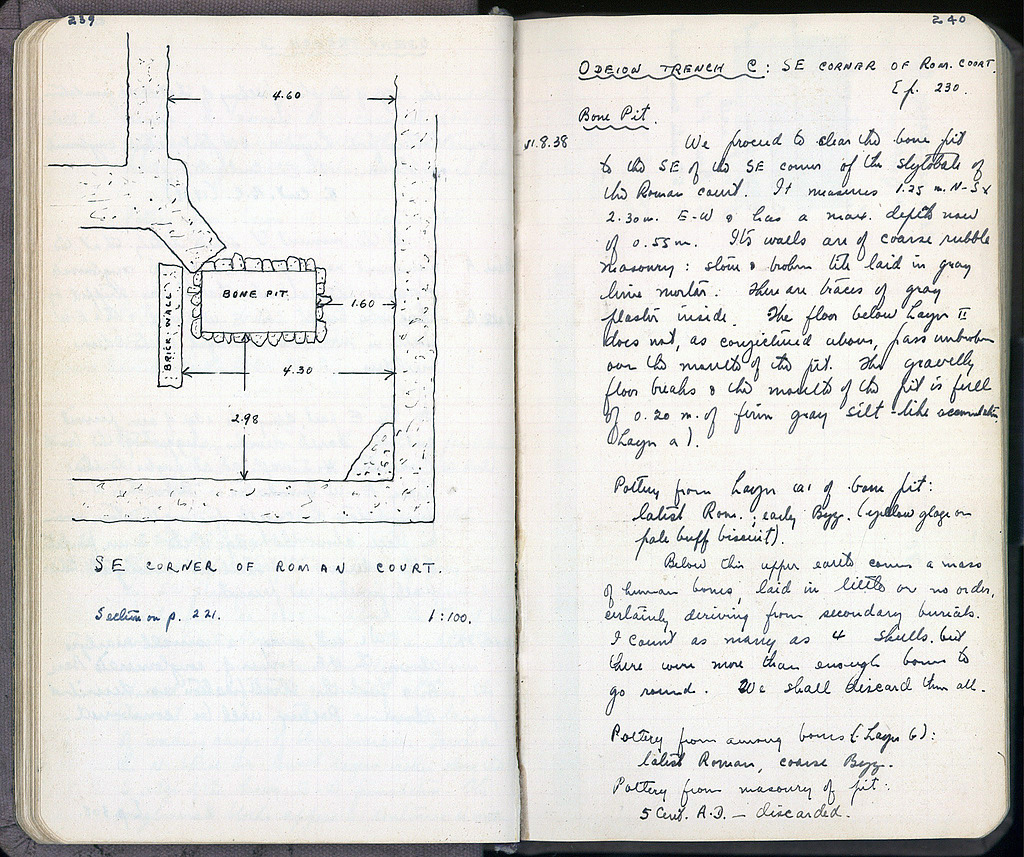 239
4.60
BONE PIT
BRICK WALL
1.60
4.30
2.98
SE CORNER OF ROMAN COURT.
Section on p. 221. 1:100.
240
ODEION TRENCH C: SE CORNER OF ROM. COURT.
[p. 230.
Bone Pit.
1.8.38 We proceed to clear the bone pit
to the SE of the SE corner of the stylobate of
the Roman court. It measures 1.25 m. N-S x
2.30 m. E-W & has a max. depth now
of 0.55 m. Its walls are of coarse rubble
masonry: stone & broken tile laid in gray
lime mortar. There are traces of gray
plaster inside. The floor below Layer II
does not, as conjectured above, pass unbroken
over the mouth of the pit. The gravelly
floor breaks & the mouth of the pit is full
of 0.20 m. of firm gray silt-like accumulation
(Layer a).
Pottery from Layer (a) of bone pit:
latest Rom., early Byz. (yellow glaze on
pale buff biscuit).
Below this upper earth comes a mass
of human bones, laid in little or no order,
certainly deriving from secondary burials.
I count as many as 4 skulls. but
there were more than enough bones to
go round. We shall discard them all.
Pottery from among bones (Layer b):
latest Roman, coarse Byz.
Pottery from masonry of pit:
5 Cent. A.D. — discarded.